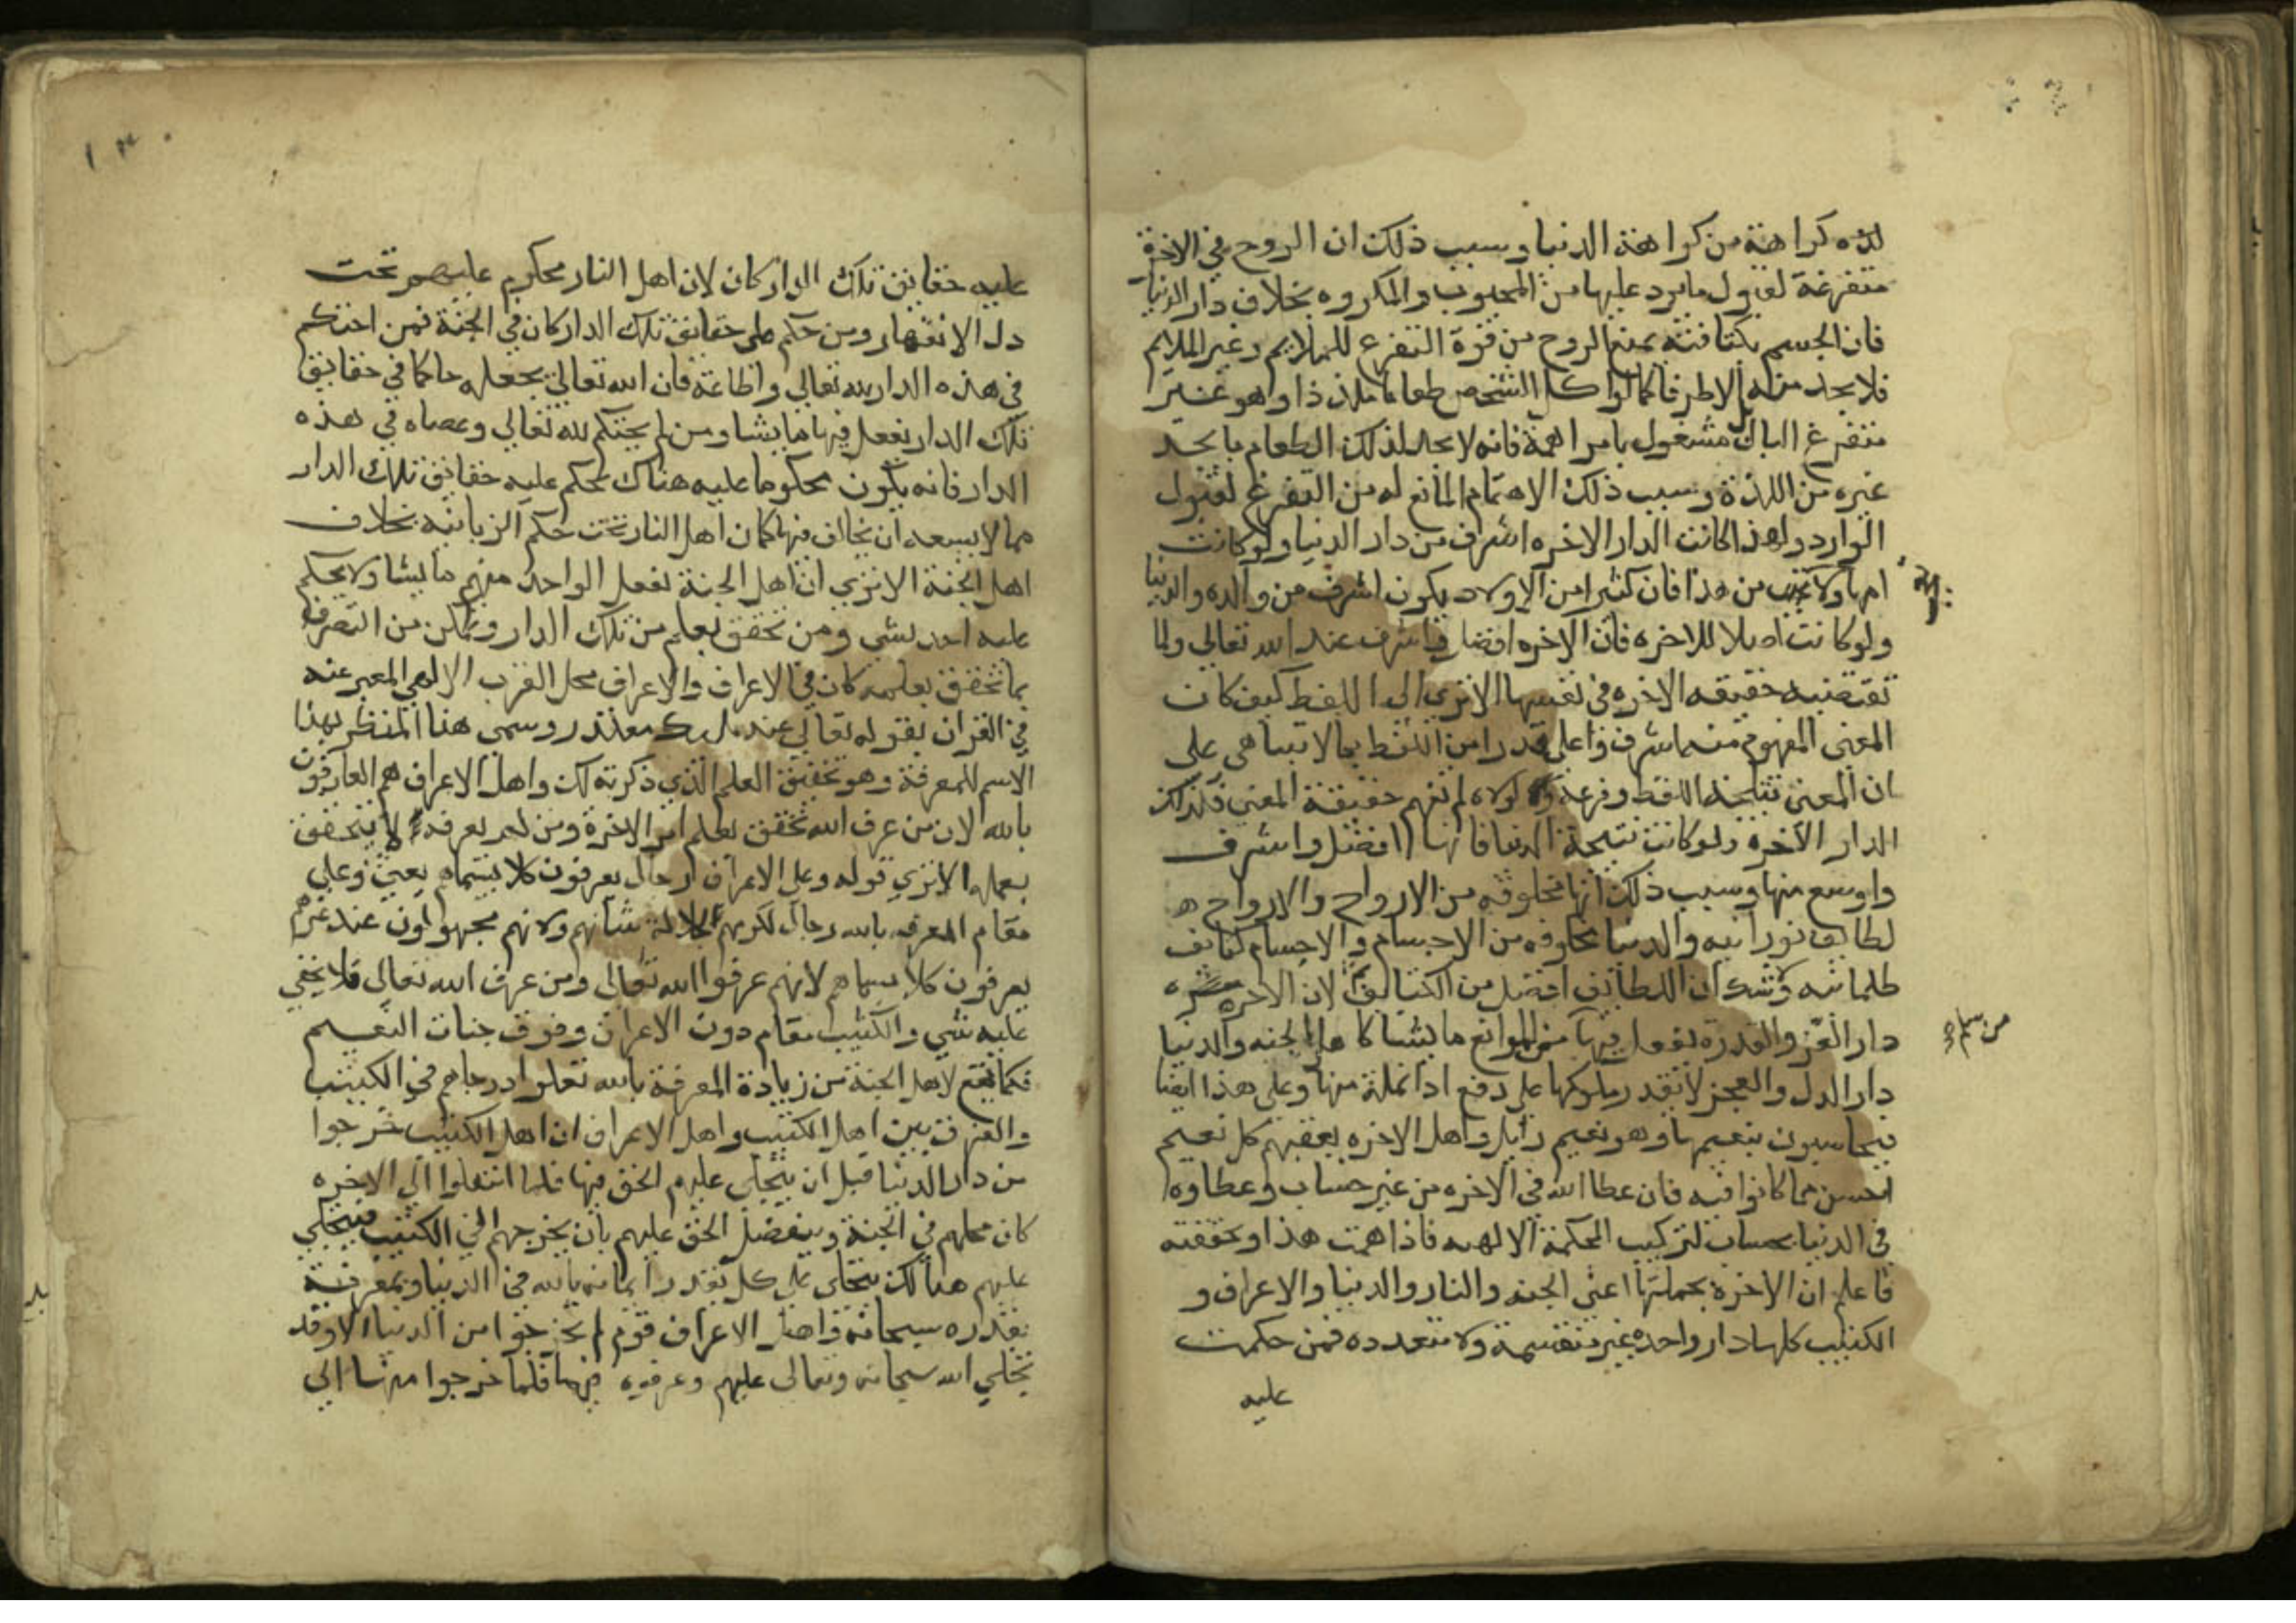 لذه كراهة من كراهة الدنيا وسبب ذلك ان الروح في الاخرة
متفرغة لقبول ما يرد عليها من المحبوب والمكروه بخلاف دار الدنيا
فان الجسم بكثافته يمنع الروح من قوة التفرغ للملايم وغير الملايم
فلا يجد منه الا طرفا كما لو اكل الشخص طعاما ملذذا وهو غير
متفرغ البال بل مشغول بامر اهمه فانه لا يجد لذلك الطعام ما يجد
غيره من اللذة وسبب ذلك الاهتمام المانع له من التفرغ لقبول
الوارد ولهذا كانت الدار الاخره اشرف من دار الدنيا ولو كانت
امها ولا تعجب من هذا فان كثيرا من الاولاد يكون اشرف من والده والدنيا
ولو كانت اصلا للاخره فان الاخره افضل واشرف عند الله تعالى ولما
تقتضيه حقيقه الاخره في نفسها الا تري الى اللفظ كيف كان
المعنى المفهوم منه اشرف واعلى قدرا من اللفظ بما لا يتناهى على
ان المعنى نتيجة اللفظ وفرعه ولولاه لم تفهم حقيقة المعنى فكذلك
الدار الاخره ولو كانت نتيجة الدنيا فانها افضل واشرف
واوسع منها وسبب ذلك انها مخلوقه من الارواح والارواح
لطايف نورانيه والدنيا مخلوقه من الاجسام والاجسام كثايف
ظلمانيه ولا شك ان اللطائف افضل من الكثائف لان الاخره
دار العز والقدرة يفعل فيها من الموانع ما يشا كاهل الجنه والدنيا
من سلم
دار الذل والعجز لا يقدر ملوكها على دفع اذا نملة منها وعلى هذا ايضا
يحاسبون بنعيمها وهو نعيم زايل واهل الاخره يعقبهم كل نعيم
احسن مما كانوا فيه فان عطا الله في الاخره من غير حساب وعطاوه
في الدنيا بحساب لتركيب الحكمة الالهيه فاذا فهمت هذا وتحققته
فاعلم ان الاخرة بجملتها اعنى الجنه والنار والدنيا والاعراف و
الكثيب كلها دار واحده غير منقسمة ولا متعدده فمن حكمت
عليه
عليه حقايق تلك الدار كان لان اهل النار محكوم عليهم تحت
ذل الانقهار ومن حكم على حقايق تلك الدار كان في الجنة فمن احتكم
في هذه الدار لله تعالي واطاعه فان الله تعالي يجعله حاكما في حقايق
تلك الدار يفعل فيها ما يشا ومن لم يحتكم لله تعالي وعصاه في هذه
الدار فانه يكون محكوما عليه هناك تحكم عليه حقايق تلك الدار
مما لا يسعه ان يخالف فيها كما ان اهل النار تحت حكم الزبانيه بخلاف
اهل الجنة الا تري ان اهل الجنة يفعل الواحد منهم ما يشا ولا يحكم
عليه احد بشي ومن تحقق بعلم من تلك الدار وتمكن من التصرف
بما تحقق بعلمه كان في الاعراف والاعراف محل القرب الالهي المعبر عنه
في القران بقوله تعالي عند مليك مقتدر وسمى هذا المنظر بهذا
الاسم للمعرفة وهو تحقيق العلم الذي ذكرته لك واهل الاعراف هم العارفون
بالله لان من عرف الله تحقق بعلم امر الاخرة ومن لم يعرفه لا يتحقق
بعلمه الا تري قوله وعلى الاعراف رجال يعرفون كلا بسيماهم يعني وعلى
مقام المعرفه بالله رجال نكرهم لجلالة شانهم ولانهم مجهولون عند غيرهم
يعرفون كلا بسيماهم لانهم عرفوا الله تعالى ومن عرف الله تعالى فلا يخفي
عليه شي والكثيب مقام دون الاعراف وفوق جنات النعيم
فكما يقع لاهل الجنة من زيادة المعرفة بالله تعلوا درجاتهم في الكثيب
والفرق بين اهل الكثيب واهل الاعراف ان اهل الكثيب خرجوا
من دار الدنيا قبل ان يتجلى عليهم الحق فيها فلما انتقلوا الى الاخره
كان محلهم في الجنة ويتفضل الحق عليهم بان يخرجهم الى الكثيب فيتجلي
عليهم هنالك يتجلى على كل بقدر ايمانه بالله في الدنيا ومعرفته
بقدره سبحانه واهل الاعراف قوم لم يخرجوا من الدنيا الا وقد
تجلي الله سبحانه وتعالى عليهم وعرفوه فيها فلما خرجوا منها الى